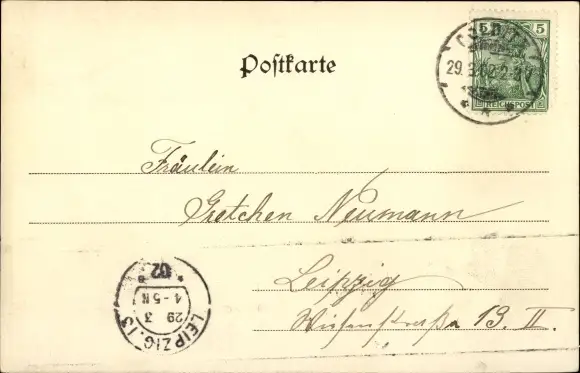 5 5
REICHSPOST
29.3.02.2-3N
Postkarte
Fräulein
Gretchen Neumann
Leipzig
Wiesenstraße 13. II.
LEIPZIG.13
29 3
4-5N
* 02 *